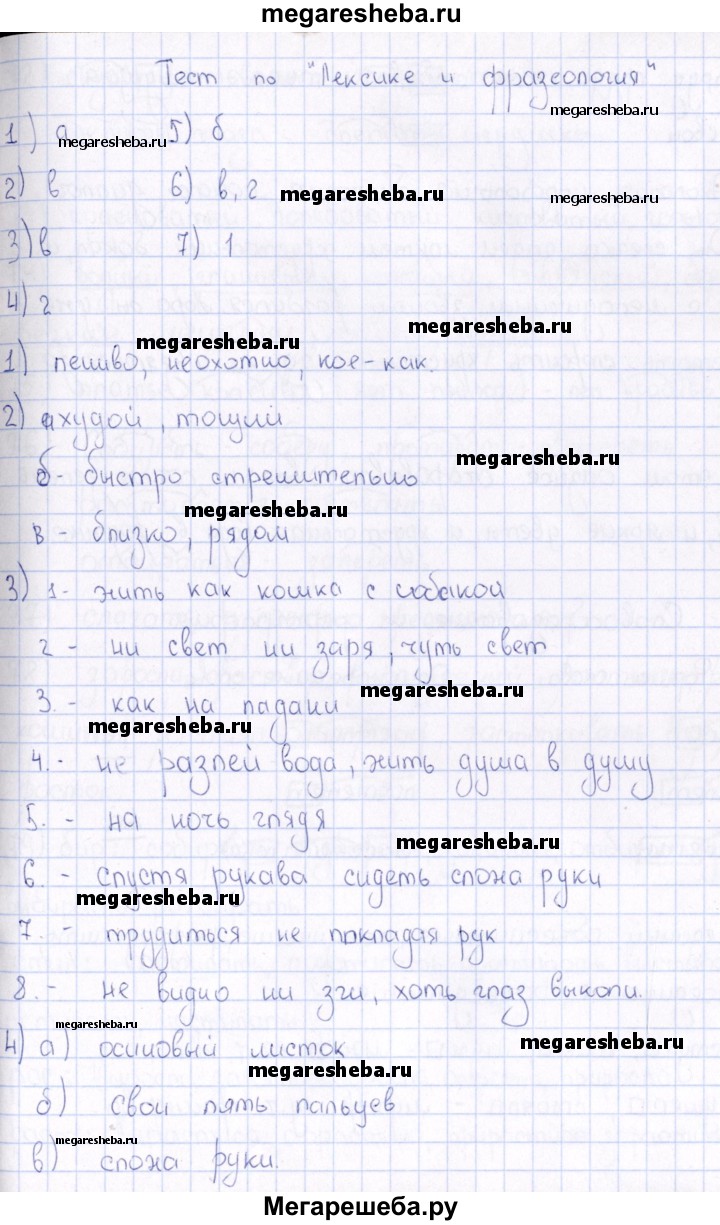 megaresheba.ru
Тест по "Лексике и фразеология"
megaresheba.ru
1) а 5) б
megaresheba.ru
2) в 6) в, г
megaresheba.ru
3) в 7) 1
4) г
megaresheba.ru
megaresheba.ru
1) лениво, неохотно, кое-как.
2) а худой, тощий
megaresheba.ru
б - быстро стремительно
megaresheba.ru
в - близко, рядом
3) 1 - жить как кошка с собакой
2 - ни свет ни заря, чуть свет
megaresheba.ru
3. - как на ладани
megaresheba.ru
4. - не разлей вода, жить душа в душу
5. - на ночь глядя
megaresheba.ru
6. - спустя рукава сидеть сложа руки
megaresheba.ru
7. - трудиться не покладая рук
8. - не видно ни зги, хоть глаз выколи.
megaresheba.ru
megaresheba.ru
4) а) осиновый листок
megaresheba.ru
б) свои пять пальцев
megaresheba.ru
в) сложа руки.
Мегарешеба.ру